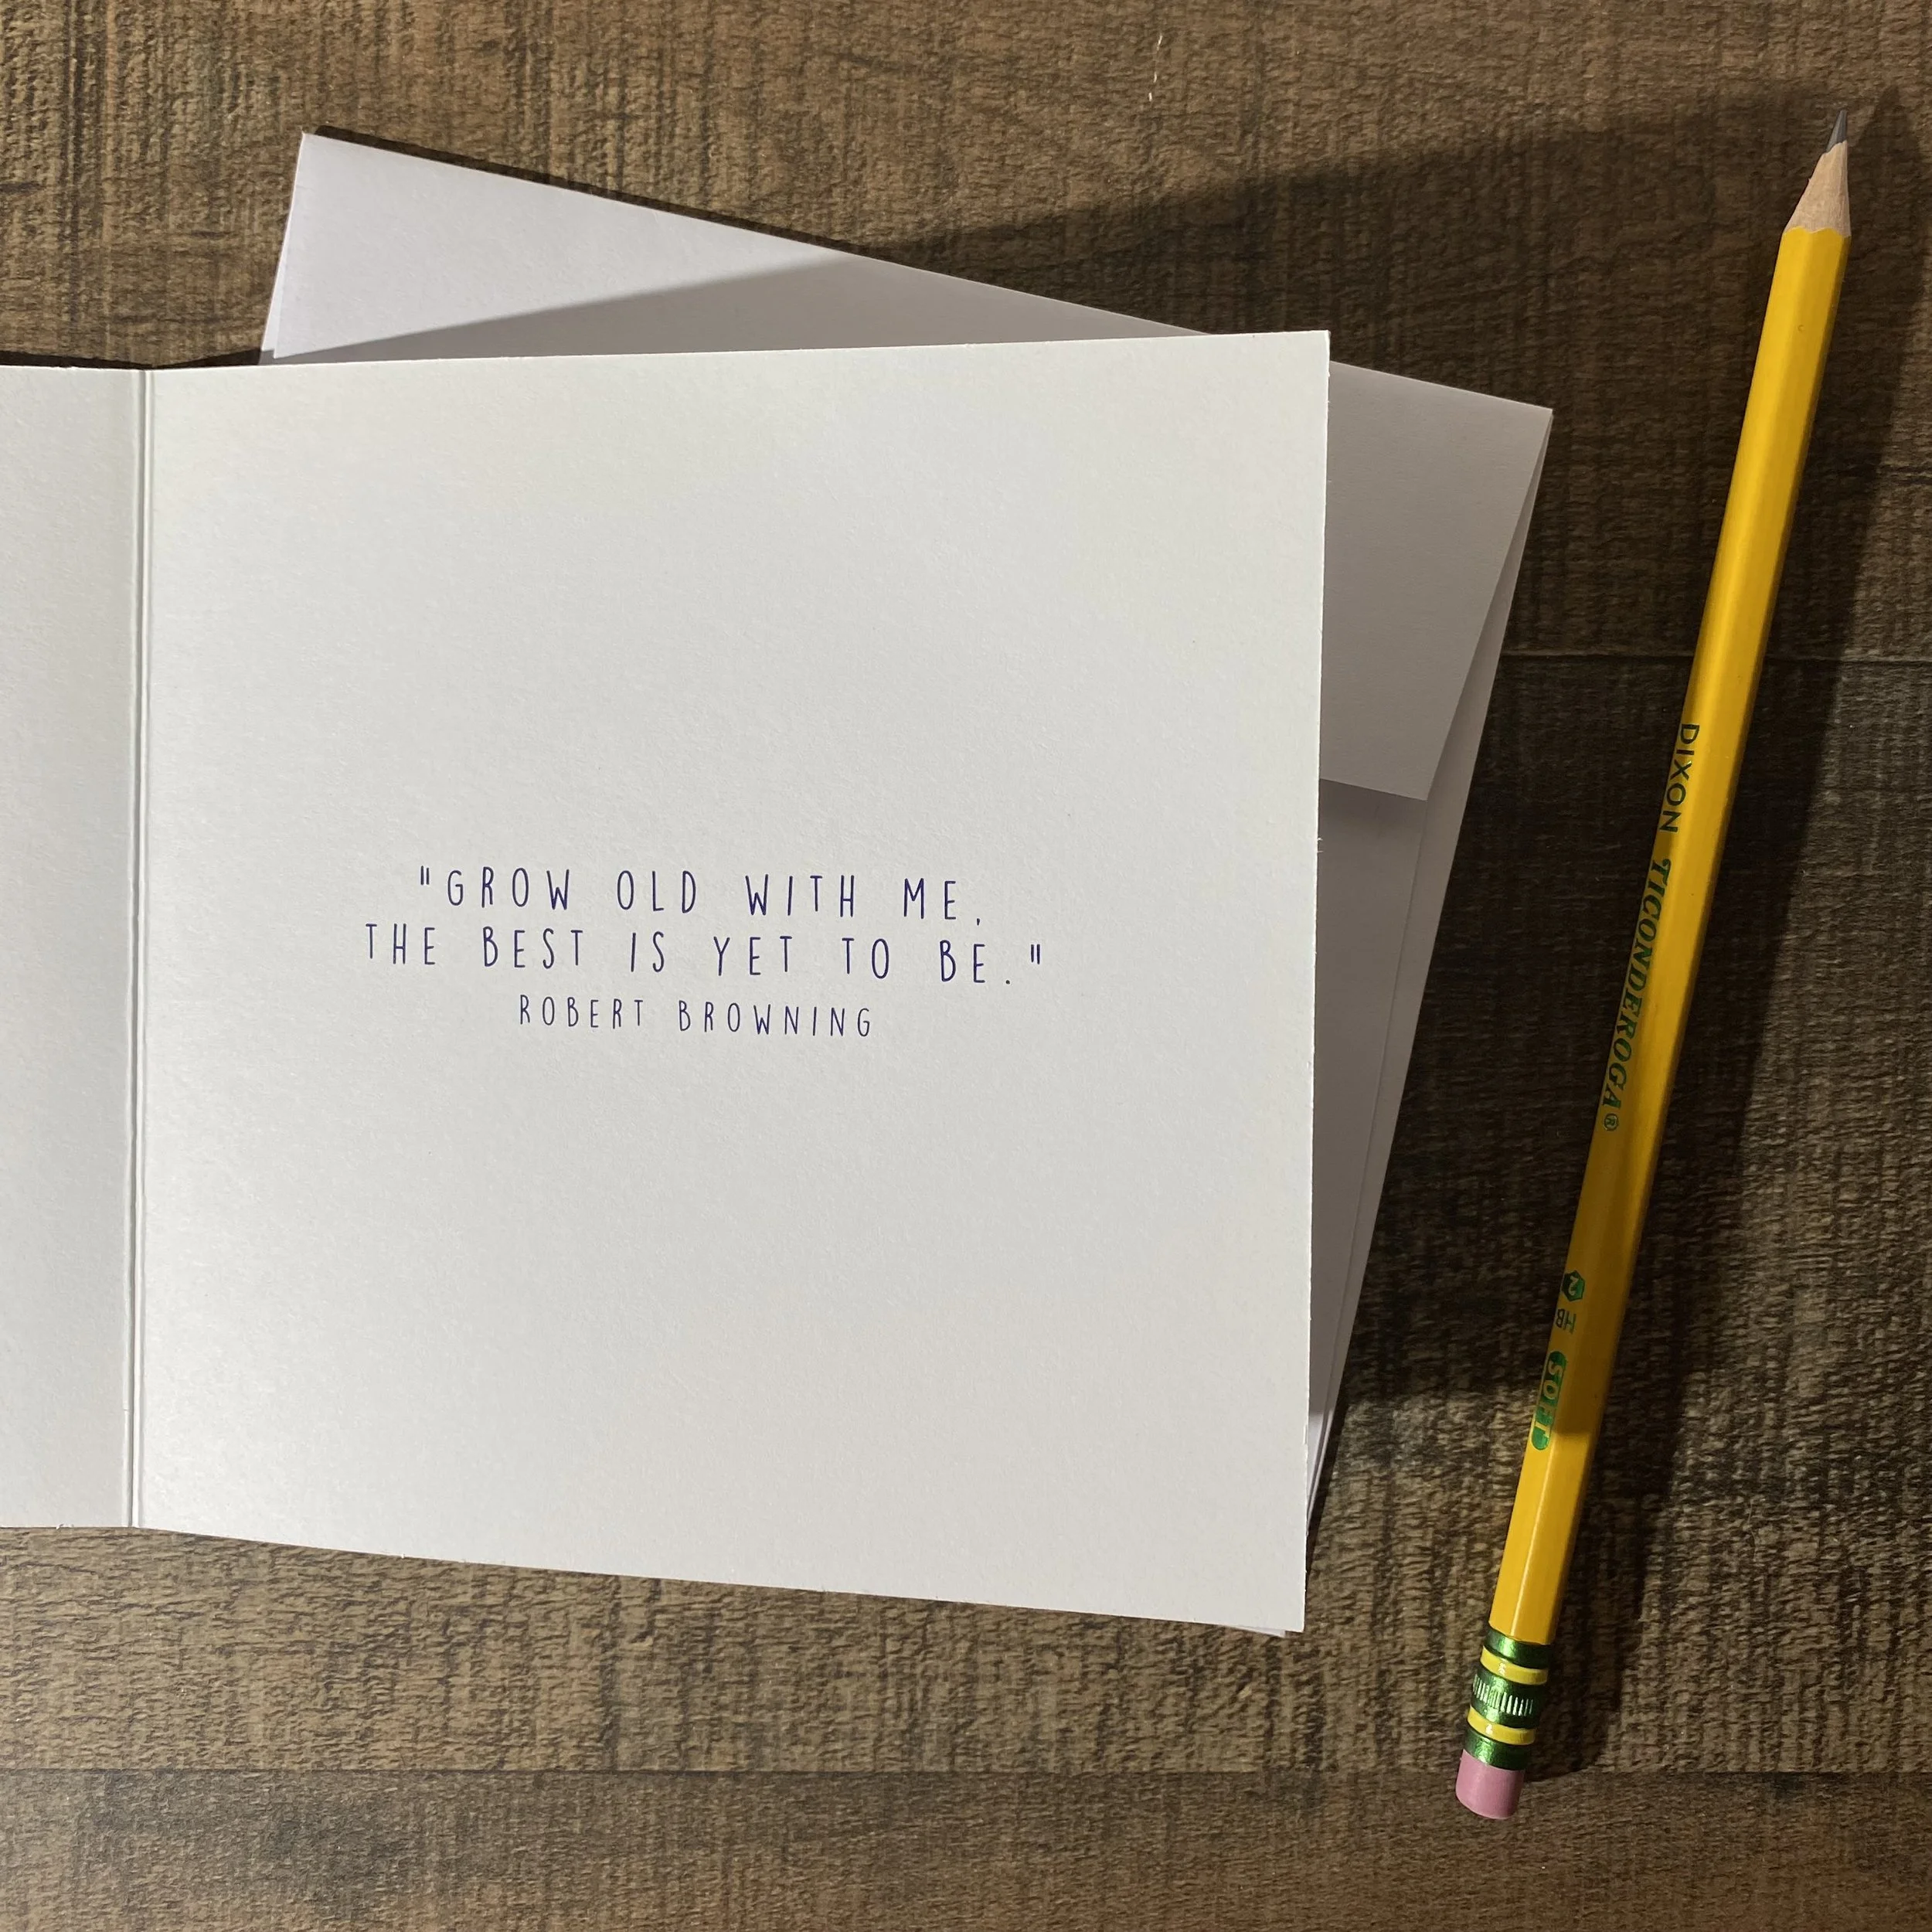 "GROW OLD WITH ME,
THE BEST IS YET TO BE."
ROBERT BROWNING
DIXON TICONDEROGA®
2 HB SOFT